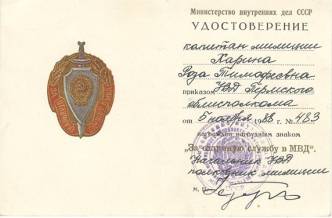 Министерство внутренних дел СССР
УДОСТОВЕРЕНИЕ
капитан милиции
Харина
Роза Тимофеевна
приказом УВД Пермского
облисполкома
от 5 ноября 1988 г. № 483
награжден нагрудным знаком
„За отличную службу в МВД".
Начальник УВД
полковник милиции